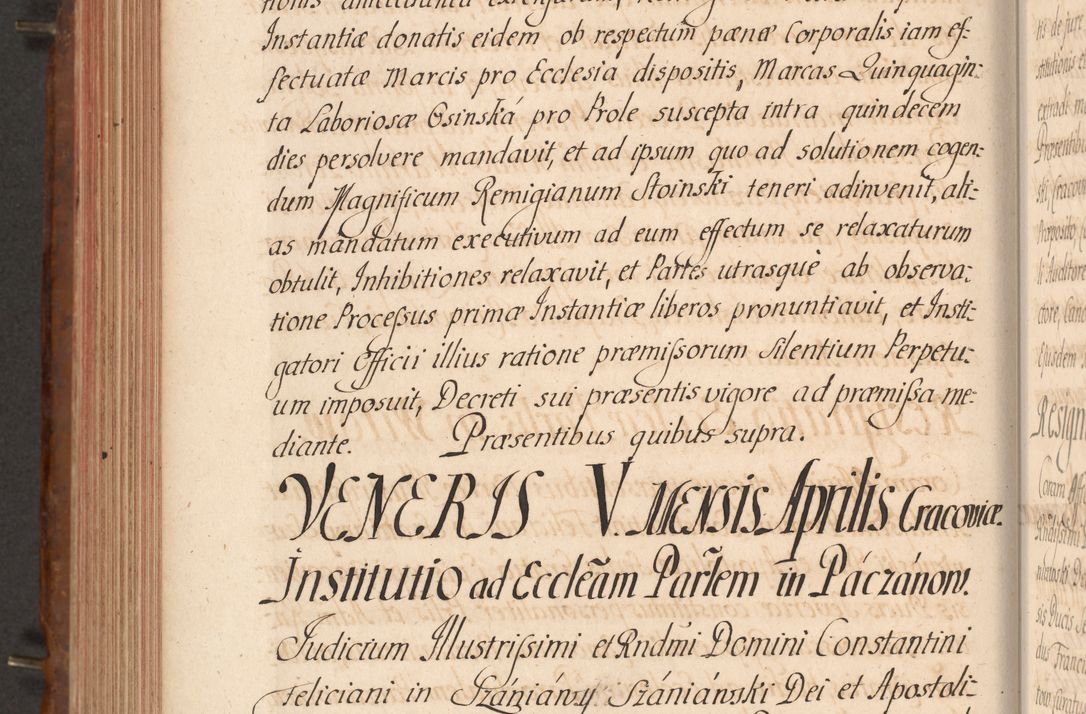 Instantiæ donatis eidem ob respectum pænæ Corporalis iam ef-
fectuatæ Marcis pro Ecclesia dispositis, Marcas Quinquagin-
ta Laboriosæ Osinská pro Prole suscepta intra quindecem
dies persolvere mandavit, et ad ipsum quo ad solutionem cogen-
dum Magnificum Remigianum Stoinski teneri adinvenit, ali-
as mandatum executivum ad eum effectum se relaxaturum
obtulit, Inhibitiones relaxavit, et Partes utrasquè ab observa-
tione Processus primæ Instantiæ liberos pronuntiavit, et Insti-
gatori Officii illius ratione præmissorum Silentium Perpetu-
um imposuit, Decreti sui præsentis vigore ad præmissa me-
diante. Præsentibus quibus supra.
VENERIS V. MENSIS Aprilis Cracoviæ.
Institutio ad Eccleãm Parłem in Páczánow.
Judicium Illustrissimi et Rndm̃i Domini Constantini
Feliciani in Szániáwy Szániáwski Dei et Apostoli-